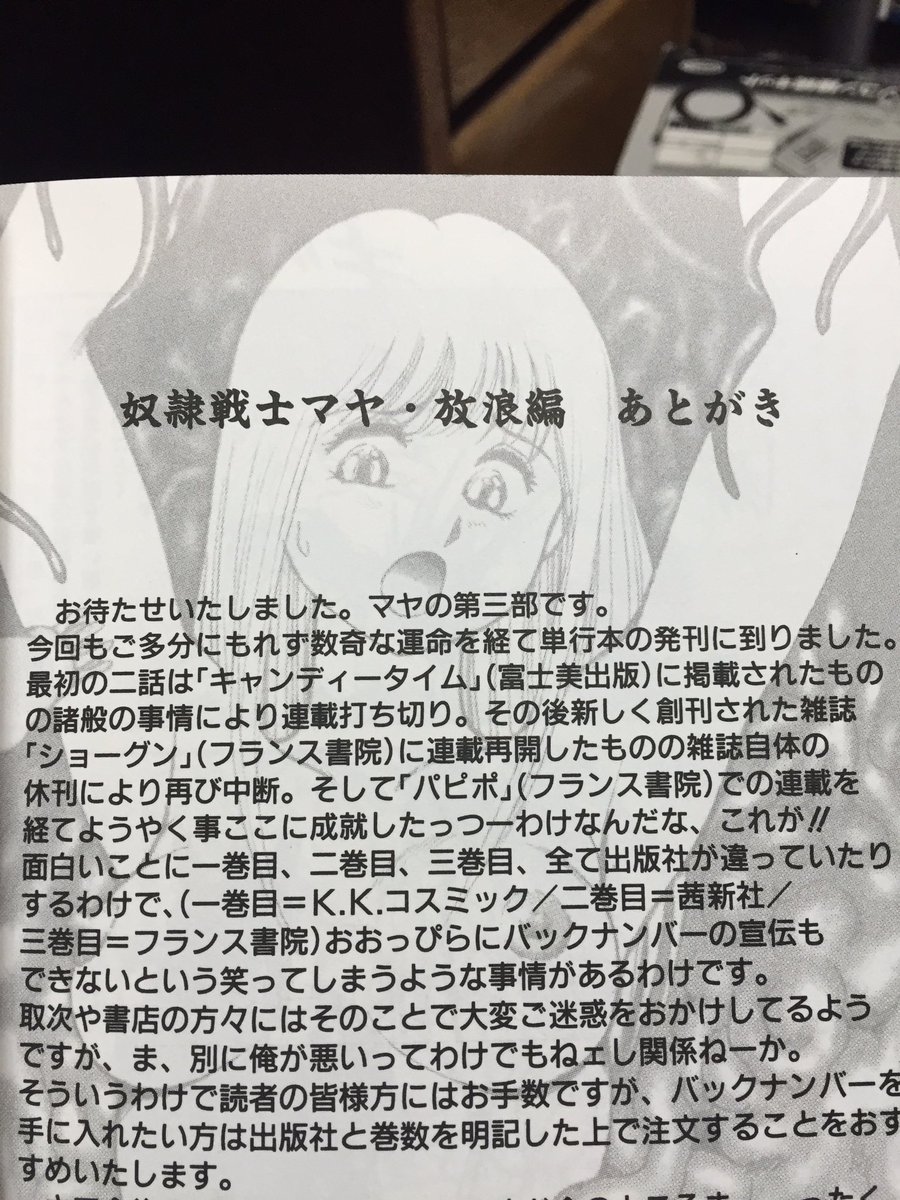 奴隷戦士マヤ・放浪編　あとがき
お待たせいたしました。マヤの第三部です。
今回もご多分にもれず数奇な運命を経て単行本の発刊に到りました。
最初の二話は「キャンディータイム」(富士美出版)に掲載されたもの
の諸般の事情により連載打ち切り。その後新しく創刊された雑誌
「ショーグン」(フランス書院)に連載再開したものの雑誌自体の
休刊により再び中断。そして「パピポ」(フランス書院)での連載を
経てようやく事ここに成就したっつーわけなんだな、これが!!
面白いことに一巻目、二巻目、三巻目、全て出版社が違っていたり
するわけで、(一巻目＝K.K.コスミック／二巻目＝茜新社／
三巻目＝フランス書院)おおっぴらにバックナンバーの宣伝も
できないという笑ってしまうような事情があるわけです。
取次や書店の方々にはそのことで大変ご迷惑をおかけしてるよう
ですが、ま、別に俺が悪いってわけでもねェし関係ねーか。
そういうわけで読者の皆様方にはお手数ですが、バックナンバーを
手に入れたい方は出版社と巻数を明記した上で注文することをおす
すめいたします。